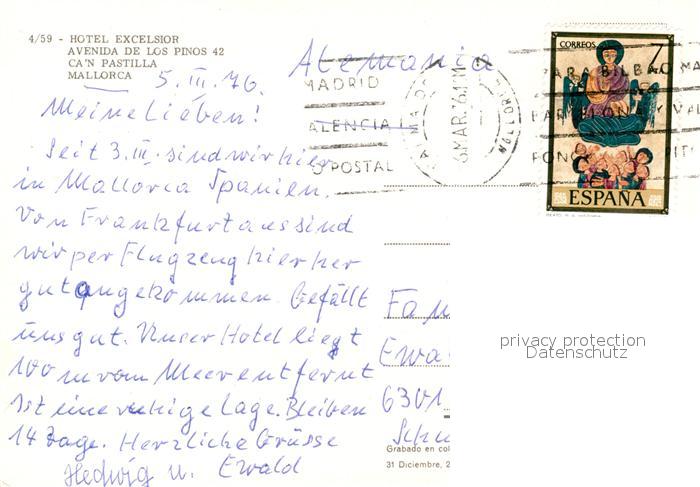 4/59 - HOTEL EXCELSIOR
AVENIDA DE LOS PINOS 42
CA'N PASTILLA
MALLORCA
5.III.76.
Alemania
Meine Lieben!
Seit 3.III. sind wir hier
in Mallorca Spanien.
Von Frankfurt aus sind
wir per Flugzeug hierher
gut angekommen. Gefällt
uns gut. Unser Hotel liegt
100 m vom Meer entfernt
Ist eine ruhige Lage. Bleiben
14 Tage. Herzliche Grüsse
Hedwig u. Ewald
MADRID
ALENCIA
POSTAL
6 MAR.76
CORREOS
7
ESPAÑA
PARA BILBAO MA
BARCELONA Y VAL
PONGA
Fam
Ewa
6301
Schu
Grabado en col
31 Diciembre, 2
privacy protection
Datenschutz